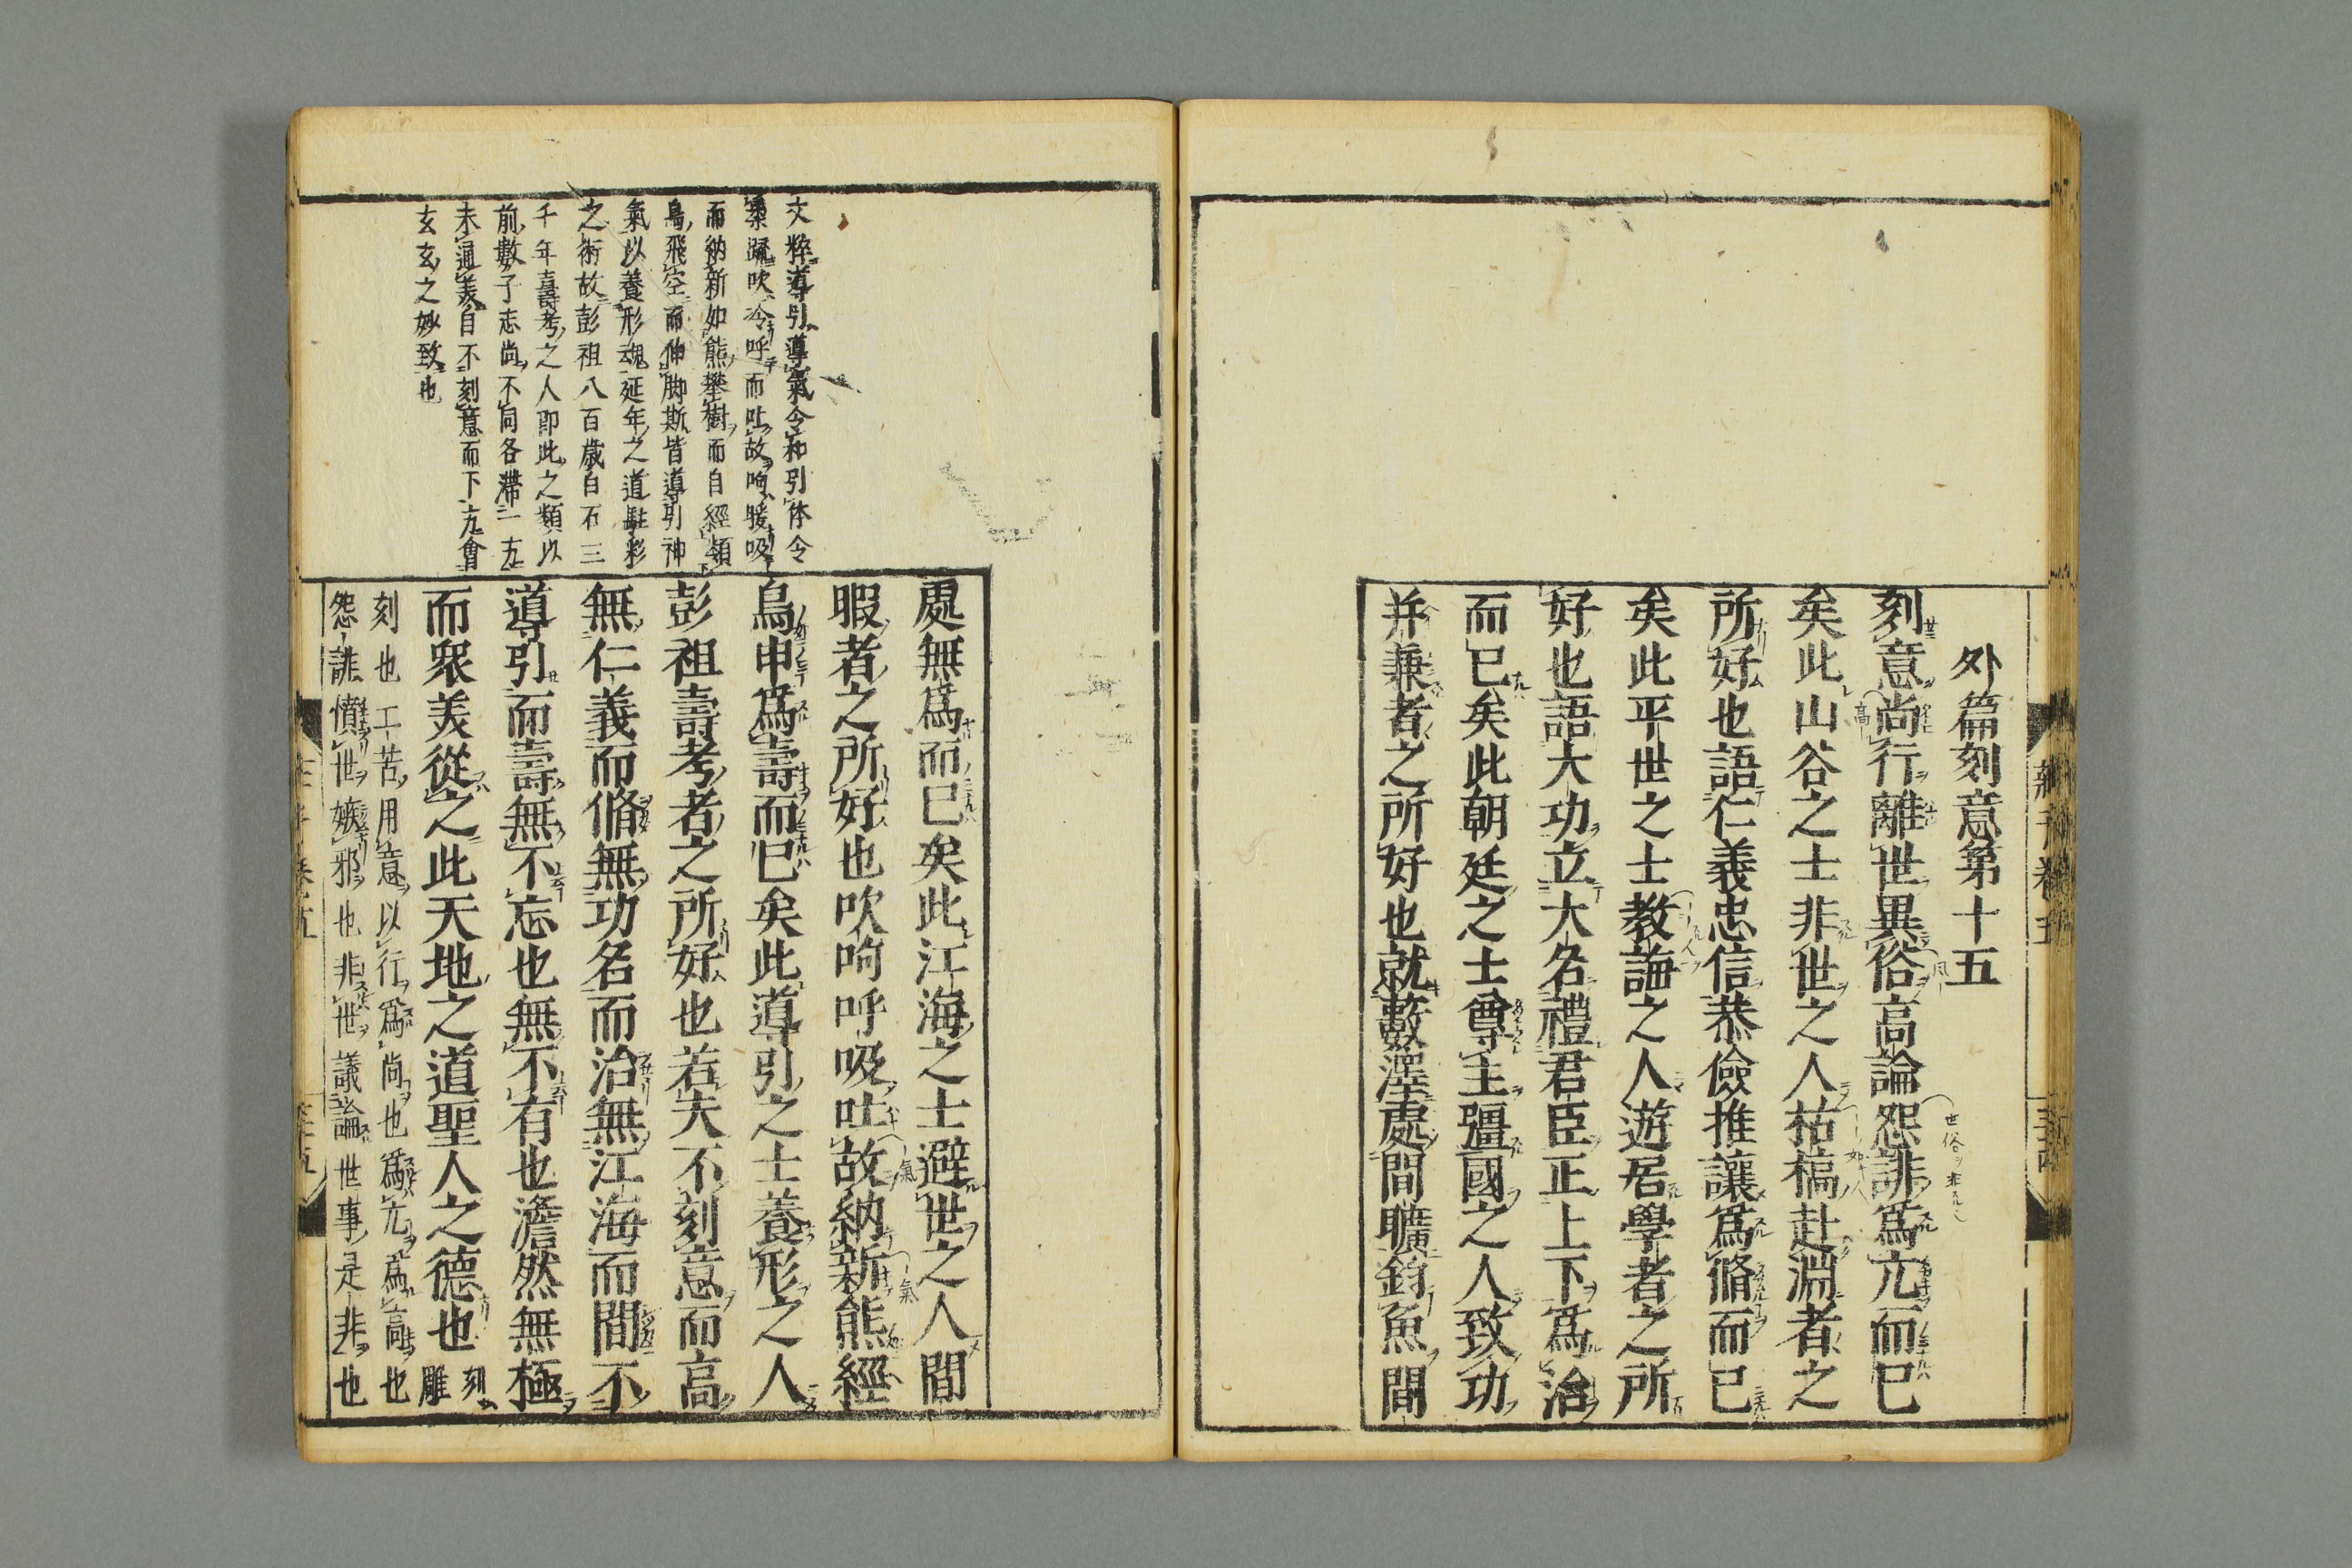 外篇刻意第十五
刻意尚行離世異俗高論怨誹爲亢而已
矣此山谷之士非世之人枯槁赴淵者之
所好也語仁義忠信恭儉推讓爲脩而已
矣此平世之士教誨之人遊居學者之所
好也語大功立大名禮君臣正上下爲治
而已矣此朝廷之士尊主彊國之人致功
并兼者之所好也就藪澤處間曠釣魚間
處無爲而已矣此江海之士避世之人間
暇者之所好也吹呴呼吸吐故納新熊經
鳥申爲壽而已矣此道引之士養形之人
彭祖壽考者之所好也若夫不刻意而高
無仁義而脩無功名而治無江海而間不
道引而壽無不忘也無不有也澹然無極
而衆美從之此天地之道聖人之德也 刻雕
刻也 工苦用意以行爲尚也爲亢爲高也
怨誹憤世嫉邪也非世議論世事是非也
文粹導引導氣令和引体令
柔疏吹冷呼而吐故呴暖吸
而納新如熊攀樹而自經類
鳥飛空而伸脚斯皆導引神
氣以養形魂延年之道駐彩
之術故彭祖八百歳白石三
千年壽考之人即此之類以
前數子志尚不同各滯一方
未通美自不刻意而下方會
玄玄之妙致也